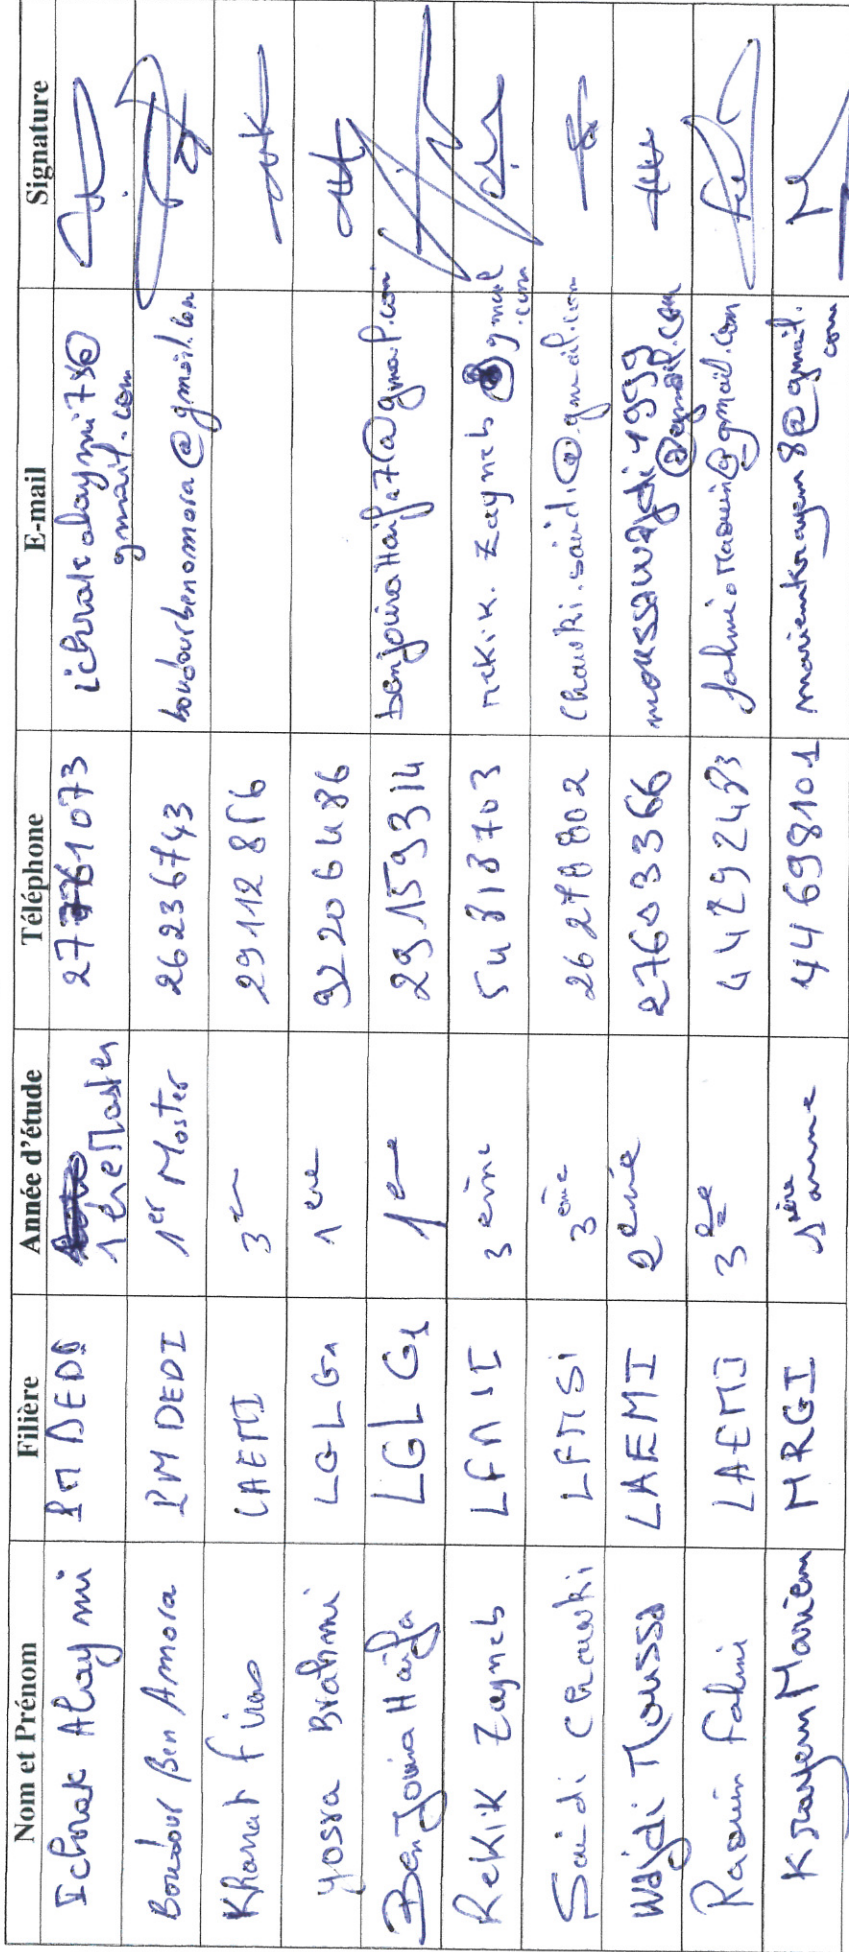 Nom et Prénom Filière Année d'étude Téléphone E-mail Signature
Ichrak Alaymi PM DEDI 1ère Master 27761073 ichrakalaymi730@gmail.com
Boudour Ben Amora PM DEDI 1er Master 26236743 boudourbenamora@gmail.com
Firas LAEMI 3 29112856
Yossra Brahmi LGLG1 1ere 92206486
Ben Jouira Haifa LGLG1 1e 29159314 benjouirahaifa7@gmail.com
Rekik Zayneb LFMSI 3 eme 54818703 rekik.zayneb@gmail.com
Saidi Chawki LFMSI 3 eme 26278802 Chawki.saidi@gmail.com
Wajdi Moussa LAEMI 2 eme 27603366 moussawajdi1999@gmail.com
Fahmi LAEMI 3 44292483
Krayem Mariem MRGI 1ière anne 44698101 mariemkrayem8@gmail.com